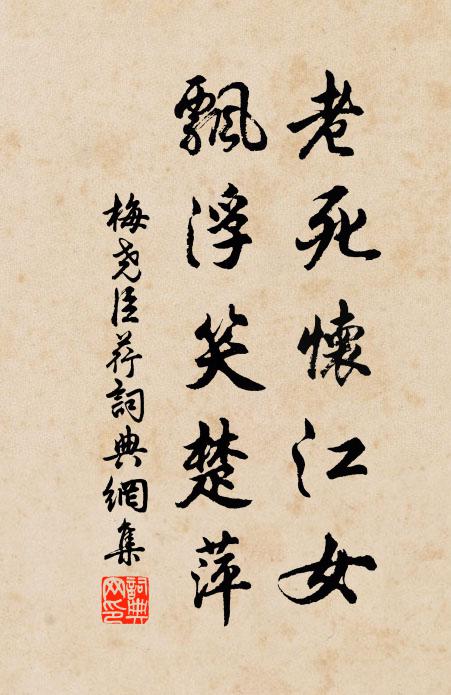 老死懷江女
飄浮笑楚萍
梅尧臣荇詞典網集
詞典网印